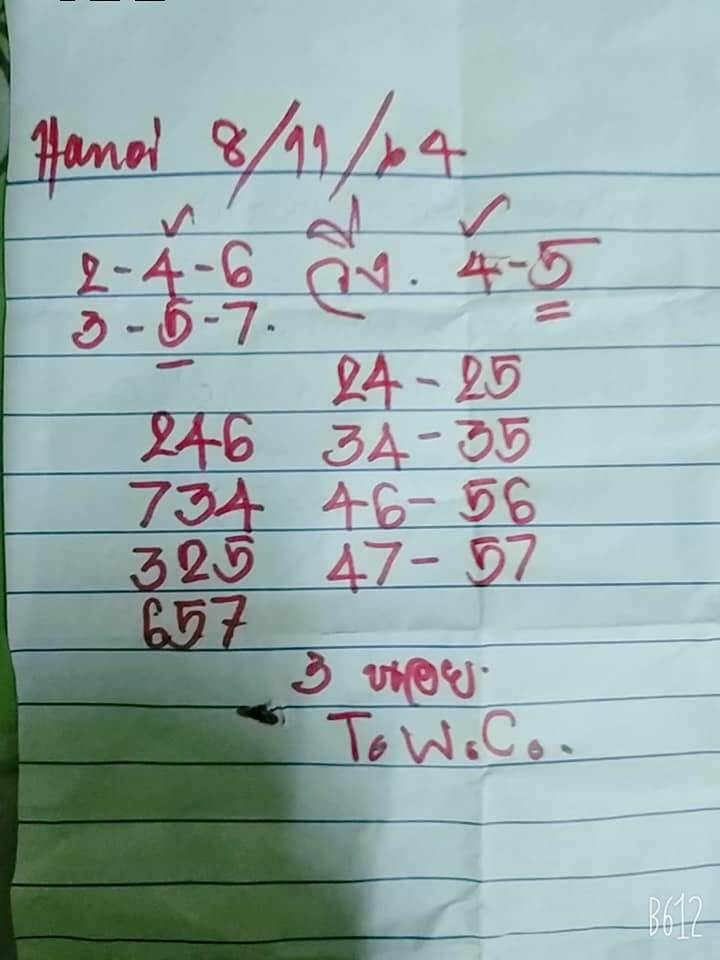 Hanoi 8/11/64
2-4-6 วิ่ง. 4-5
3-5-7.
24-25
246 34-35
734 46-56
325 47-57
657
3
T.W.C..
B612